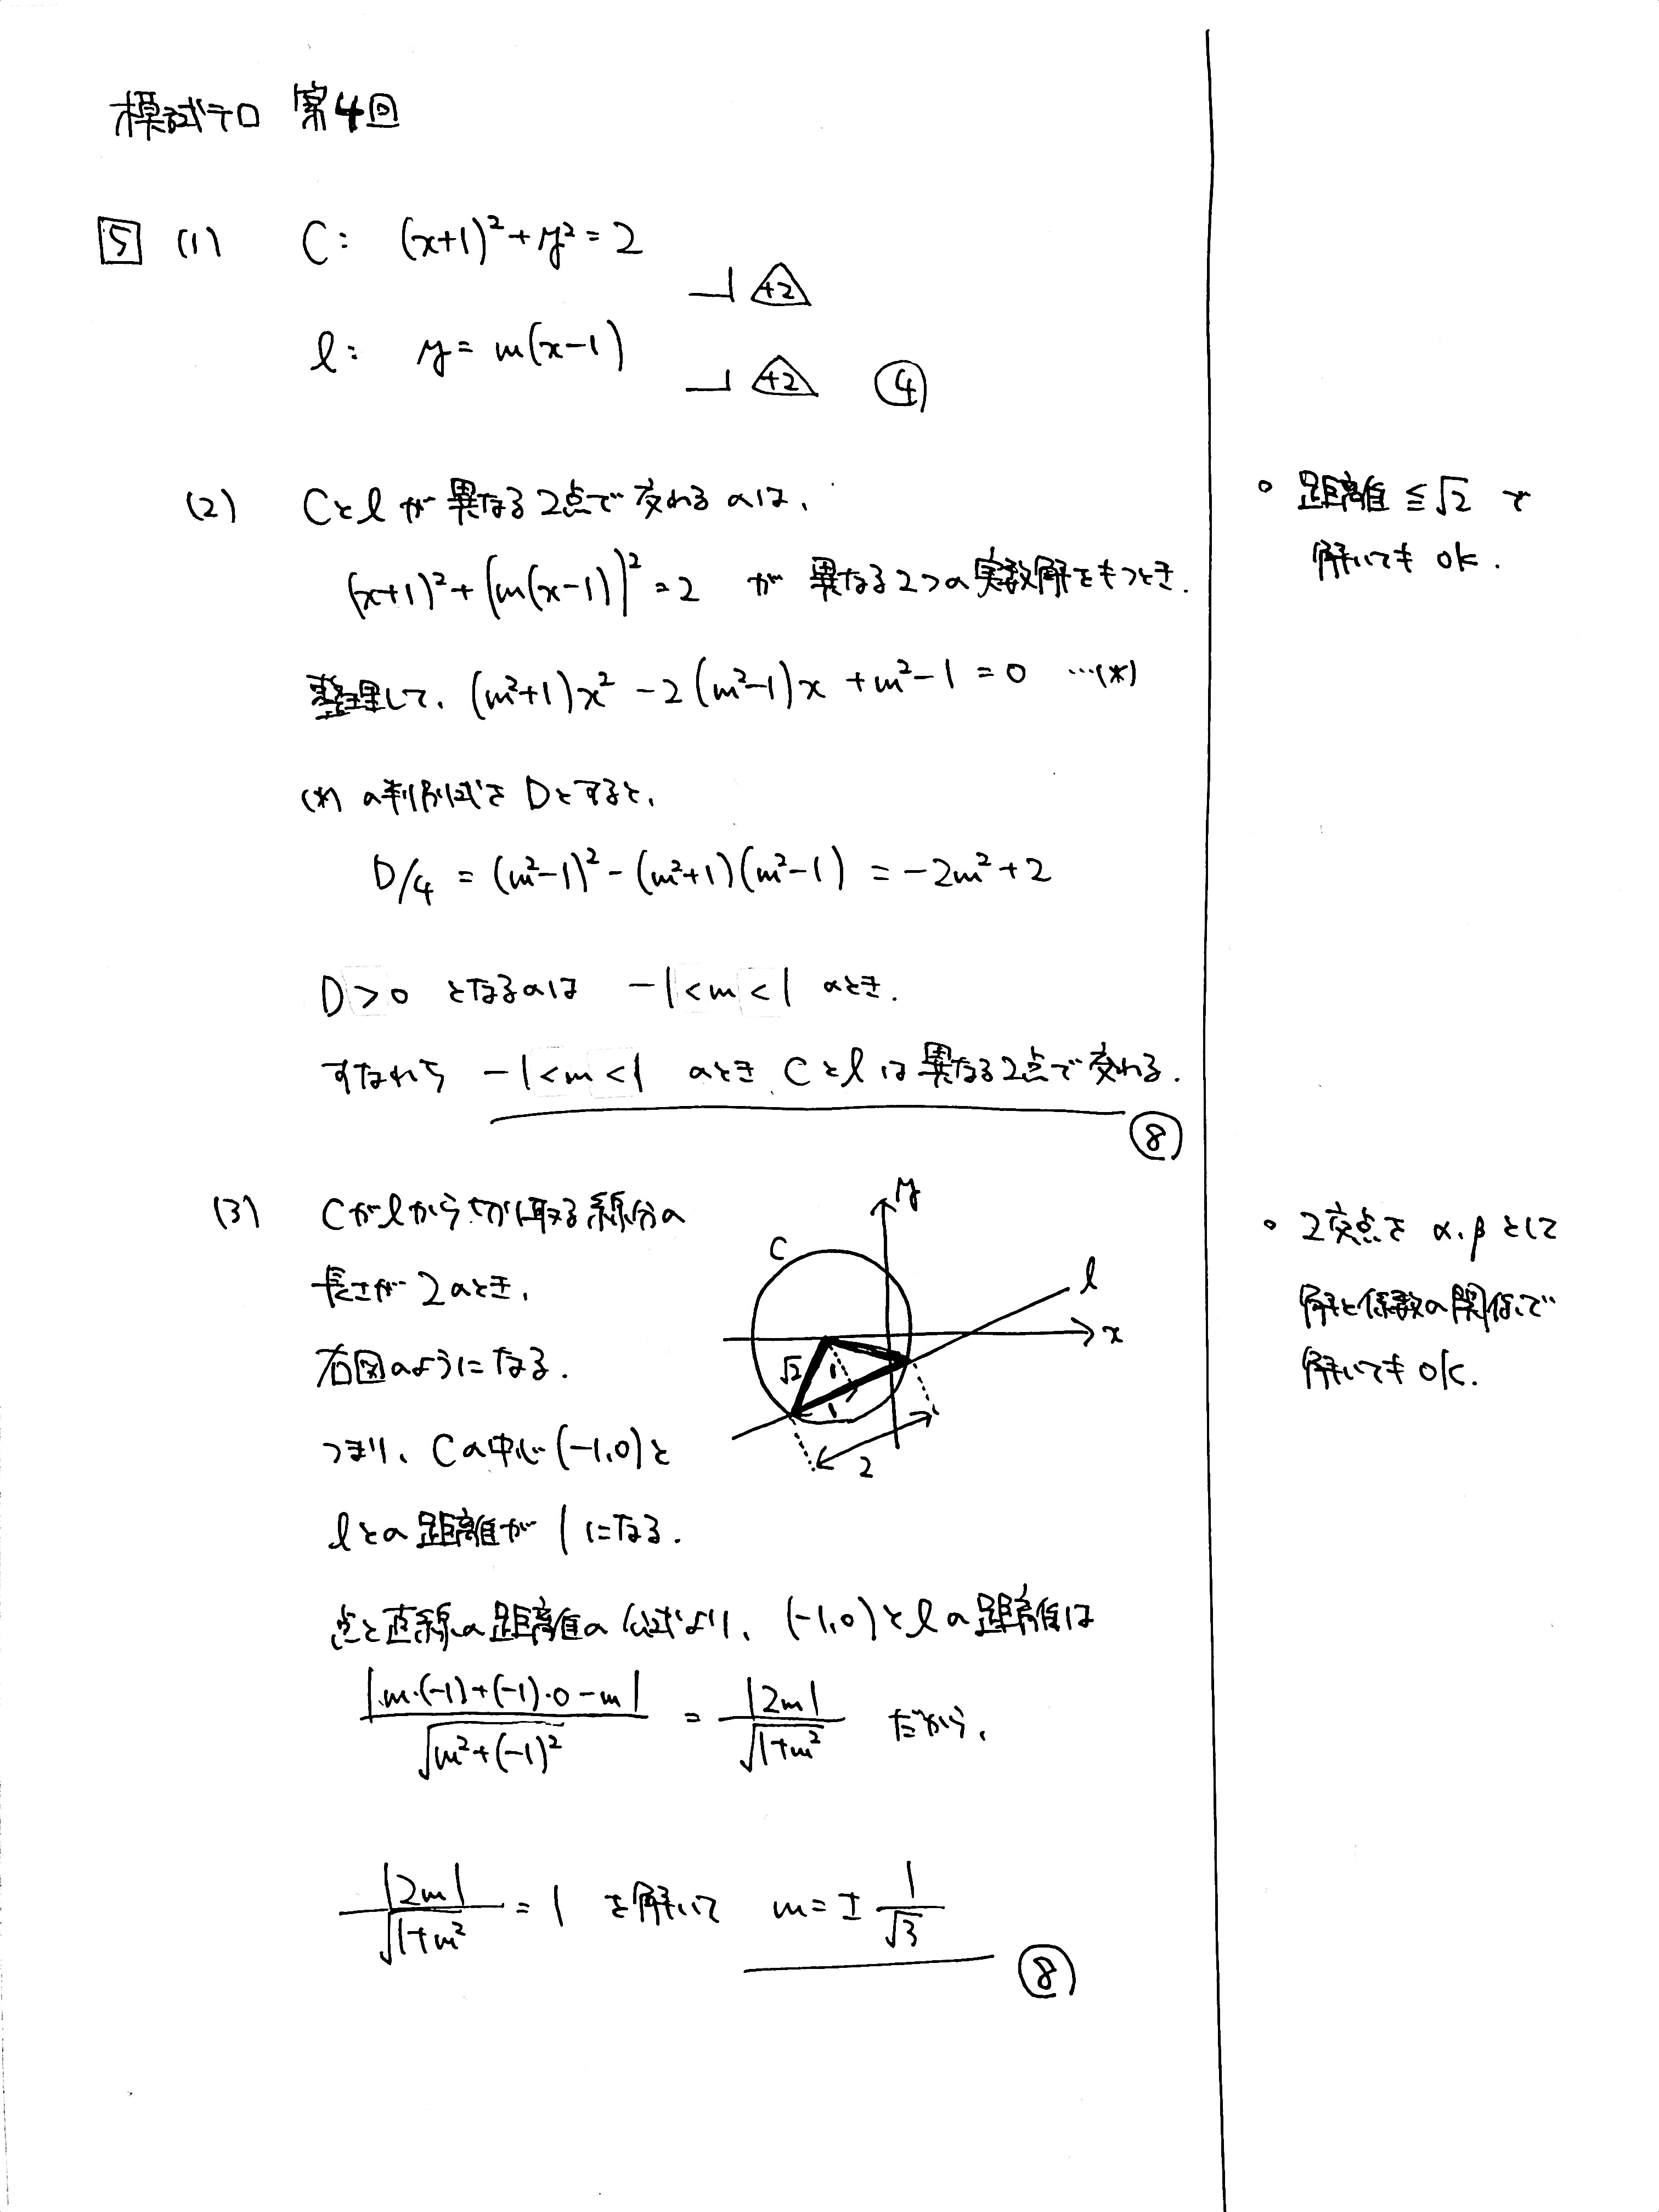 模試テロ 第4回
5 (1) C: (x+1)²+y²=2
+2
l: y=m(x-1)
+2 ④
(2) Cとlが異なる2点で交わるのは、
(x+1)²+(m(x-1))²=2 が 異なる2つの実数解をもつとき.
整理して、(m²+1)x²-2(m²-1)x+m²-1=0 …(*)
(*)の判別式をDとすると、
D/4=(m²-1)²-(m²+1)(m²-1)=-2m²+2
D>0 となるのは -1<m<1 のとき.
すなわち -1<m<1 のとき Cとlは異なる2点で交わる.
⑧
(3) Cがlから切り取る線分の
長さが2のとき、
右図のようになる.
つまり、Cの中心(-1,0)と
lとの距離が1になる.
y
C
l
x
√2
1
1
2
点と直線の距離の公式より、(-1,0)とlの距離は
|m·(-1)+(-1)·0-m|/√(m²+(-1)²) = |2m|/√(1+m²) だから、
|2m|/√(1+m²)=1 を解いて m=±1/√3
⑧
○ 距離≦√2 で
解いても OK.
○ 2交点を α,βとして
解と係数の関係で
解いても OK.